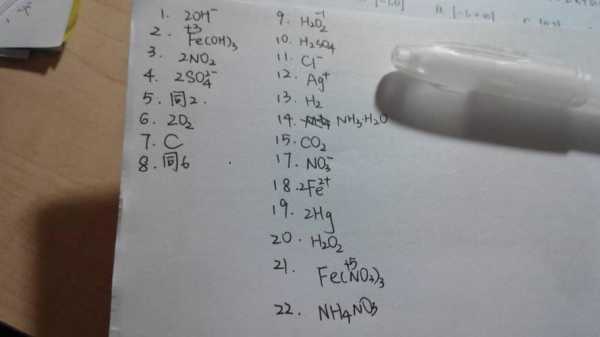 1. 2OH⁻
2. Fe(OH)₃ +3
3. 2NO₂
4. 2SO₄²⁻
5. 同2.
6. 2O₂
7. C
8. 同6
9. H₂O₂ -1
10. H₂SO₄
11. Cl⁻
12. Ag⁺
13. H₂
14. NH₃·H₂O
15. CO₂
17. NO₃⁻
18. 2Fe²⁺
19. 2Hg
20. H₂O₂
21. Fe(NO₃)₃ +5
22. NH₄NO₃